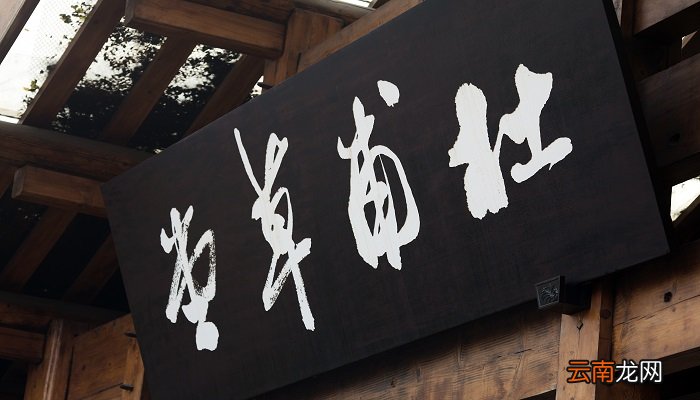 杜甫草堂
云南龙网